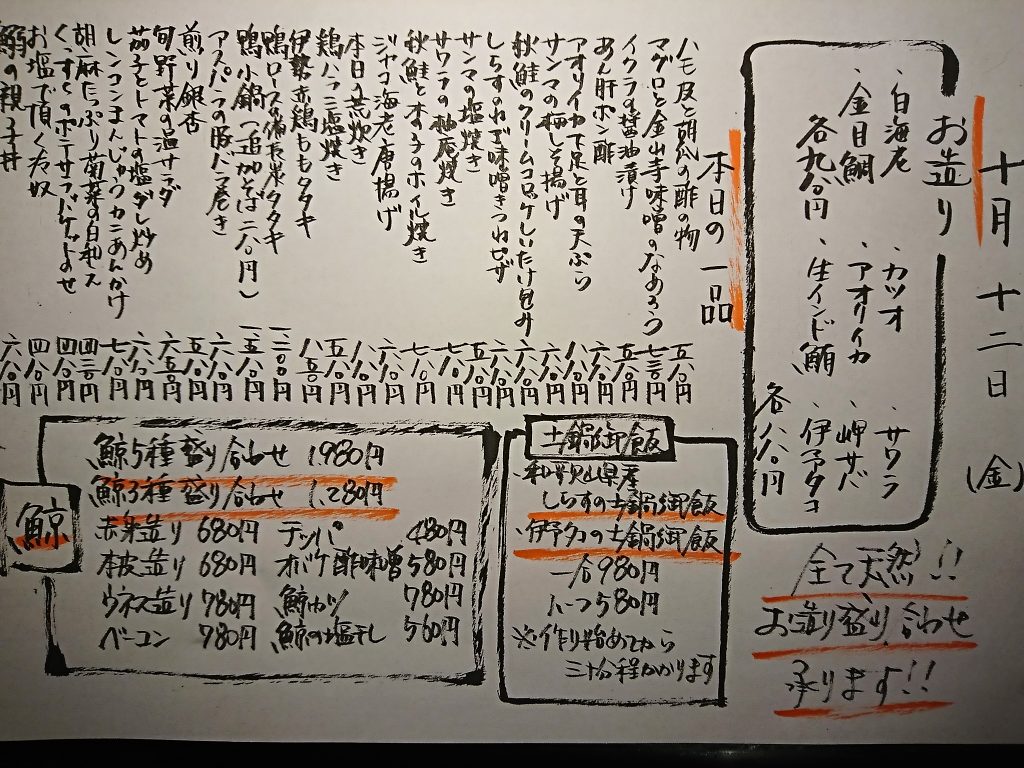 十月 十二日 (金)
お造り
・白海老 ・カツオ ・サワラ
・金目鯛 ・アオリイカ ・岬サバ
・生インド鮪 ・伊予タコ
各九八〇円
各八八〇円
全て天然!!
お造り盛り合わせ
承ります!!
本日の一品
ハモ皮と胡瓜の酢の物 五八〇円
マグロと金山寺味噌のなめろう 七三〇円
イクラの醤油漬け 五八〇円
あん肝ポン酢 六八〇円
アオリイカ下足と耳の天ぷら 八八〇円
サンマの梅しそ揚げ 六八〇円
秋鮭のクリームコロッケしいたけ包み 六八〇円
しらすのねぎ味噌きつねピザ 五八〇円
サンマの塩焼き 七八〇円
サワラの柚庵焼き
秋鮭と木の子のホイル焼き
ジャコ海老唐揚げ 六八〇円
本日の荒炊き
鶏ハツこ塩焼き 五八〇円
伊勢赤鶏ももタタキ 八五〇円
鴨ロースの備長炭タタキ
鴨小鍋(追加そば二八〇円)
アスパラの豚バラ巻き 六八〇円
煎り銀杏 五八〇円
旬野菜の温サラダ 六五〇円
茄子とトマトの塩ダレ炒め 六八〇円
レンコンまんじゅうカニあんかけ 七八〇円
胡麻たっぷり菊菜の白和え 四三〇円
くずし冷奴 四八〇円
お塩で頂く冷奴 四八〇円
鰯の親子丼 六八〇円
土鍋御飯
・和歌山県産
しらすの土鍋御飯
・伊予タコの土鍋御飯
一合980円
ハーフ580円
※作り始めてから
三十分程かかります
鯨
鯨5種盛り合わせ 1,980円
鯨3種盛り合わせ 1,280円
赤身造り 680円 テッパ 480円
本皮造り 680円 オバケ酢味噌 580円
ウネス造り 780円 鯨カツ 780円
ベーコン 780円 鯨の塩干し 560円